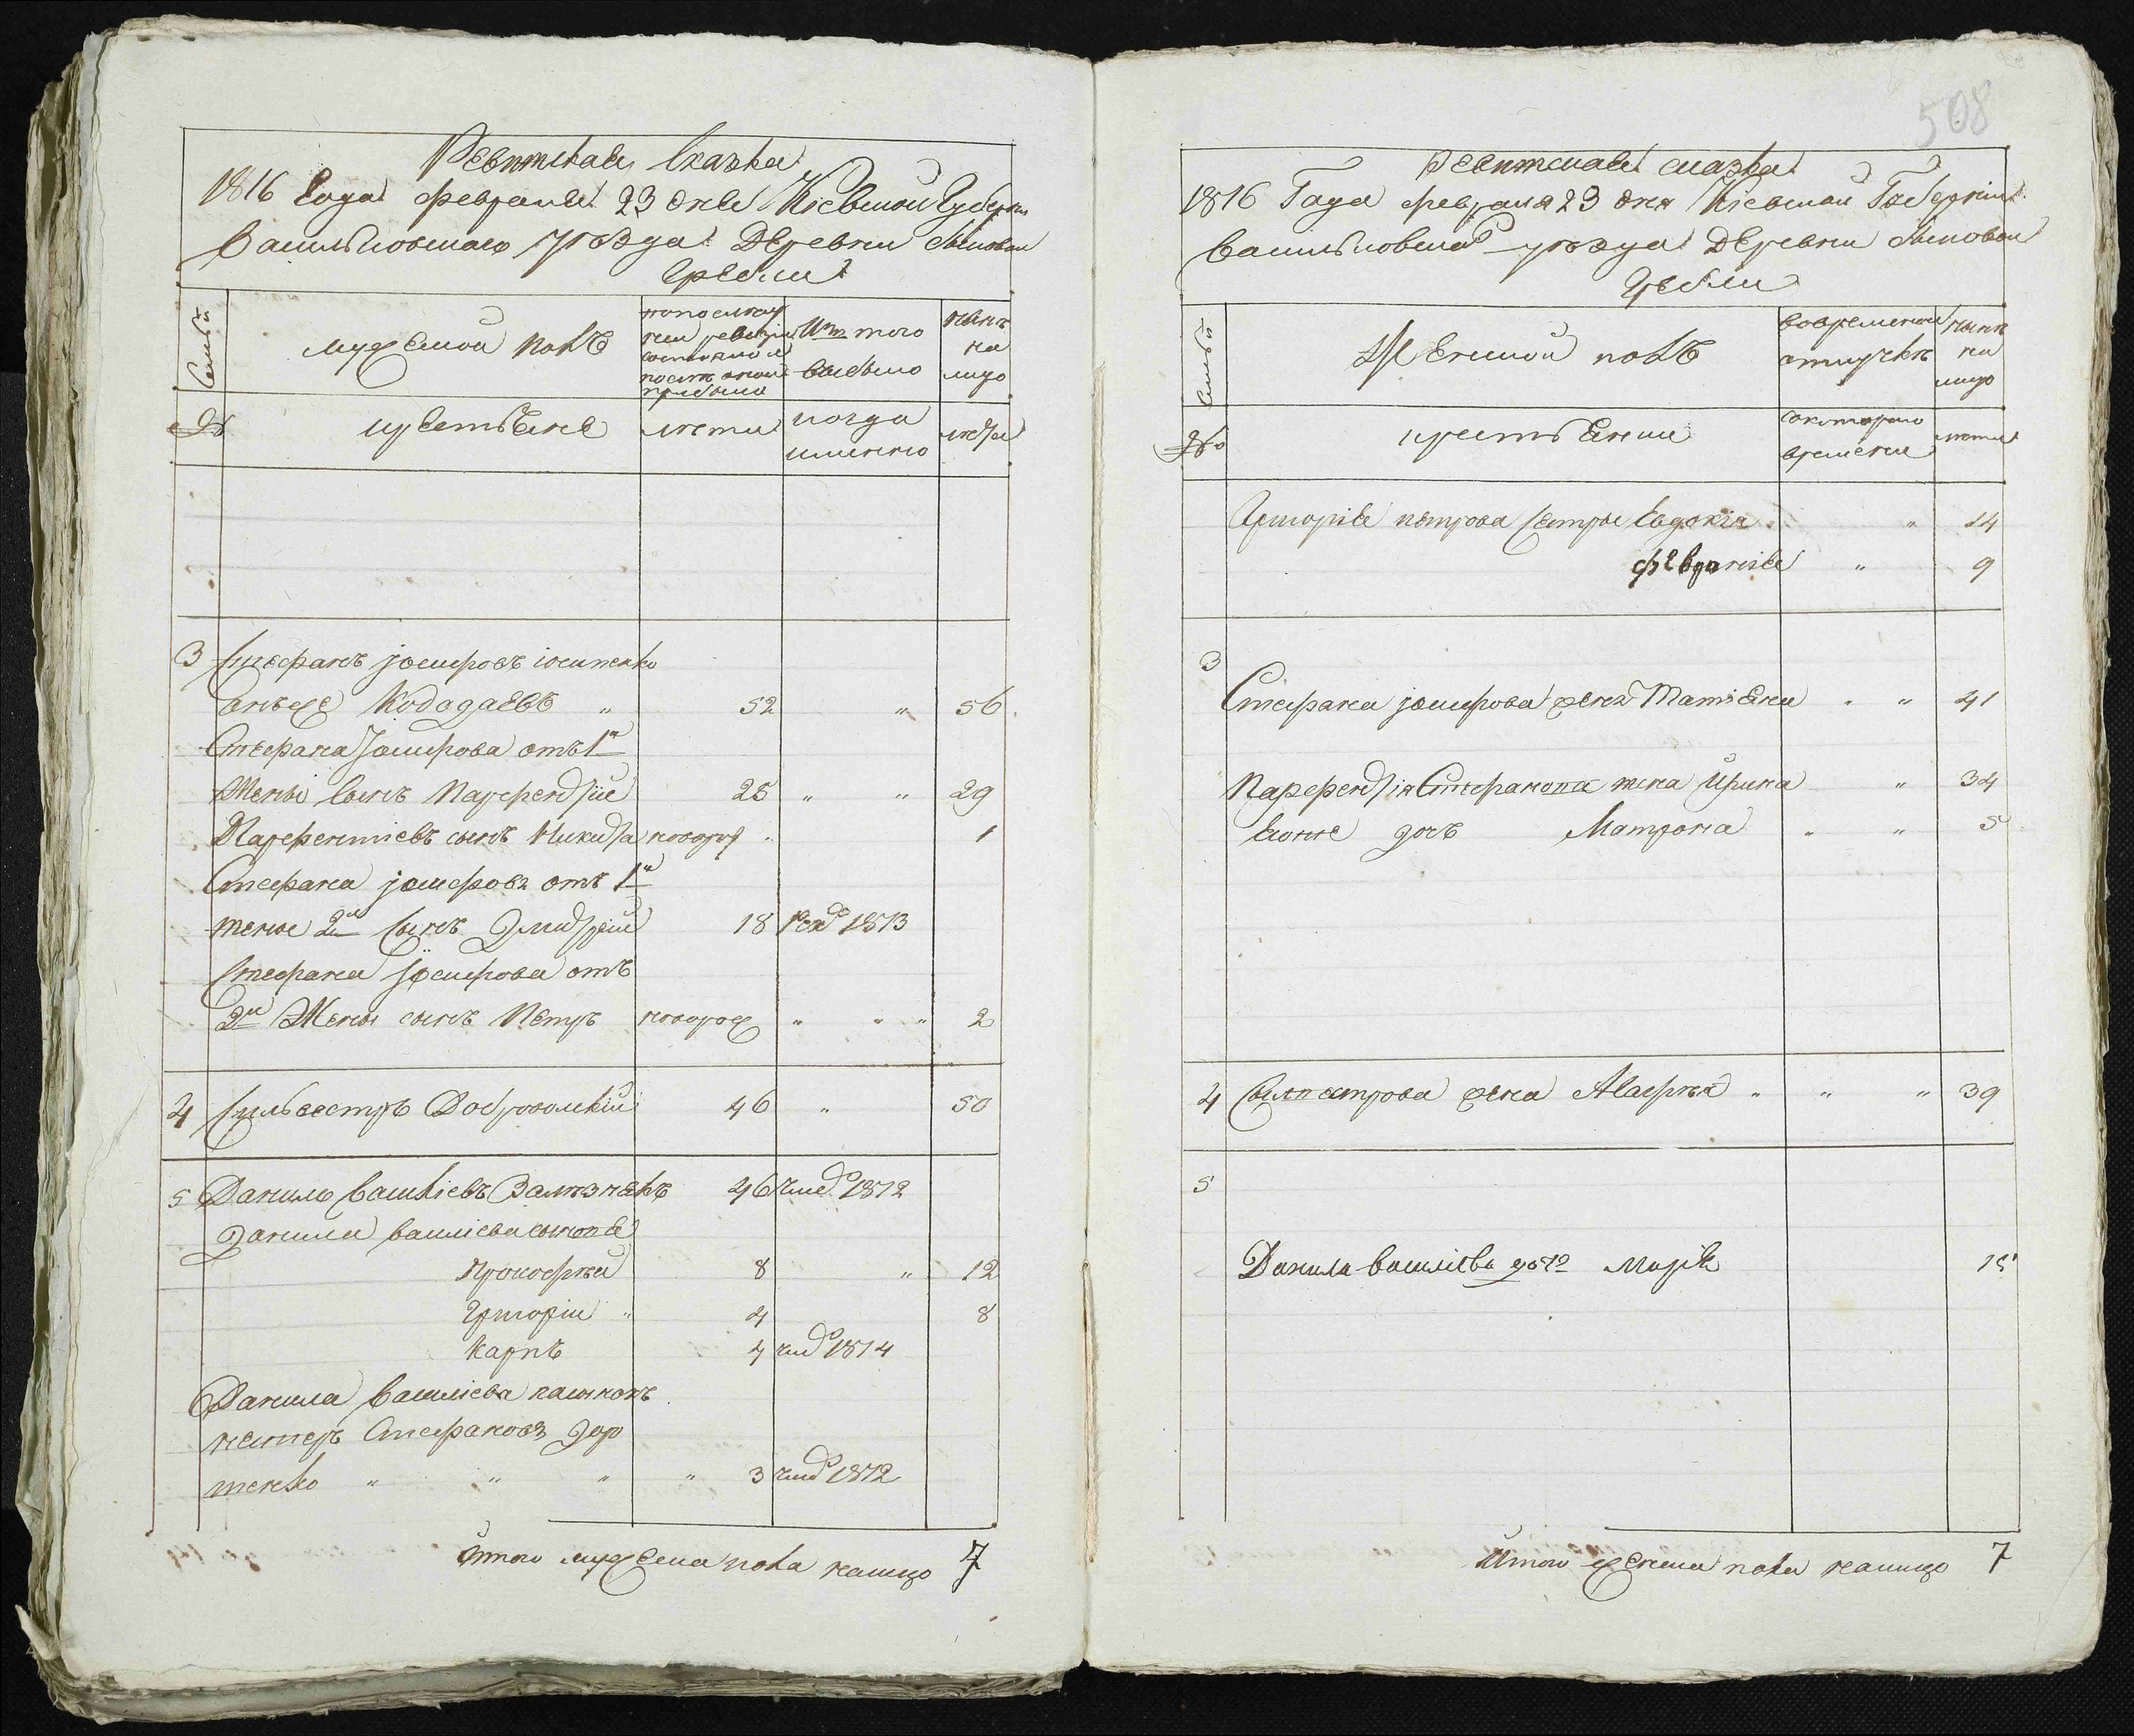 Ревижская Сказка
1816 Года февраля 23 дня Кіевской Губерніи
Васильковскаго уѣзда Деревни Яцковои
Гребли
Семьи
мужеской полъ
по послѣд
ней ревизіи
состояло и
послѣ оной
прибыло
Изъ того
выбыло
нынѣ
на
лицо
№
крестьяне
лѣта
когда
именно
лѣта
3 Стефанъ Іосифовъ Іосипенко
онъже Кододаевъ „ 52 „ 56
Стефана Іосифова отъ 1й
Жены Сынъ Парфентій 25 „ „ 29
Парфентіевъ сынъ Никита новорож „ 1
Стефана Іосифова отъ 1й
жены 2й Сынъ Дмитрій 18 рекд 1813
Стефана Іосифова отъ
2й Жены сынъ Петръ новорож „ „ „ 2
4 Сильвестръ Доброволскій 46 „ 50
5 Данило Василіевъ Зализнякъ 46 умед 1812
Данила василіева сыновья
Прокофей 8 „ 12
Григорій „ 4 8
Карпъ 4 умд 1814
Данила Василіева пасынокъ
Нестеръ Стефановъ Доро
шенко „ „ „ „ 3 умд 1812
Итого мужеска пола налицо 7
508
Ревижская сказка
1816 Года февраля 23 дня Кіевской Губерніи
Васильковска уѣзда Деревни Яцковои
Гребли
Семьи
Женской полъ
во временной
отлучкѣ
нынѣ
на
лицо
№
крестьянки
с котораго
времени
лѣта
Григорія петрова сестры Евдокія „ 14
февронія „ 9
3
Стефана Іосифова жена Татіяна „ „ 41
Парфентія Стефанова жена Ирина „ 34
Еѣоне дочь Матрона „ „ 5
4 Силвестрова жена Агафія „ „ „ 39
5
Данила василіева дочь Марія 15
Итого женска пола налицо 7